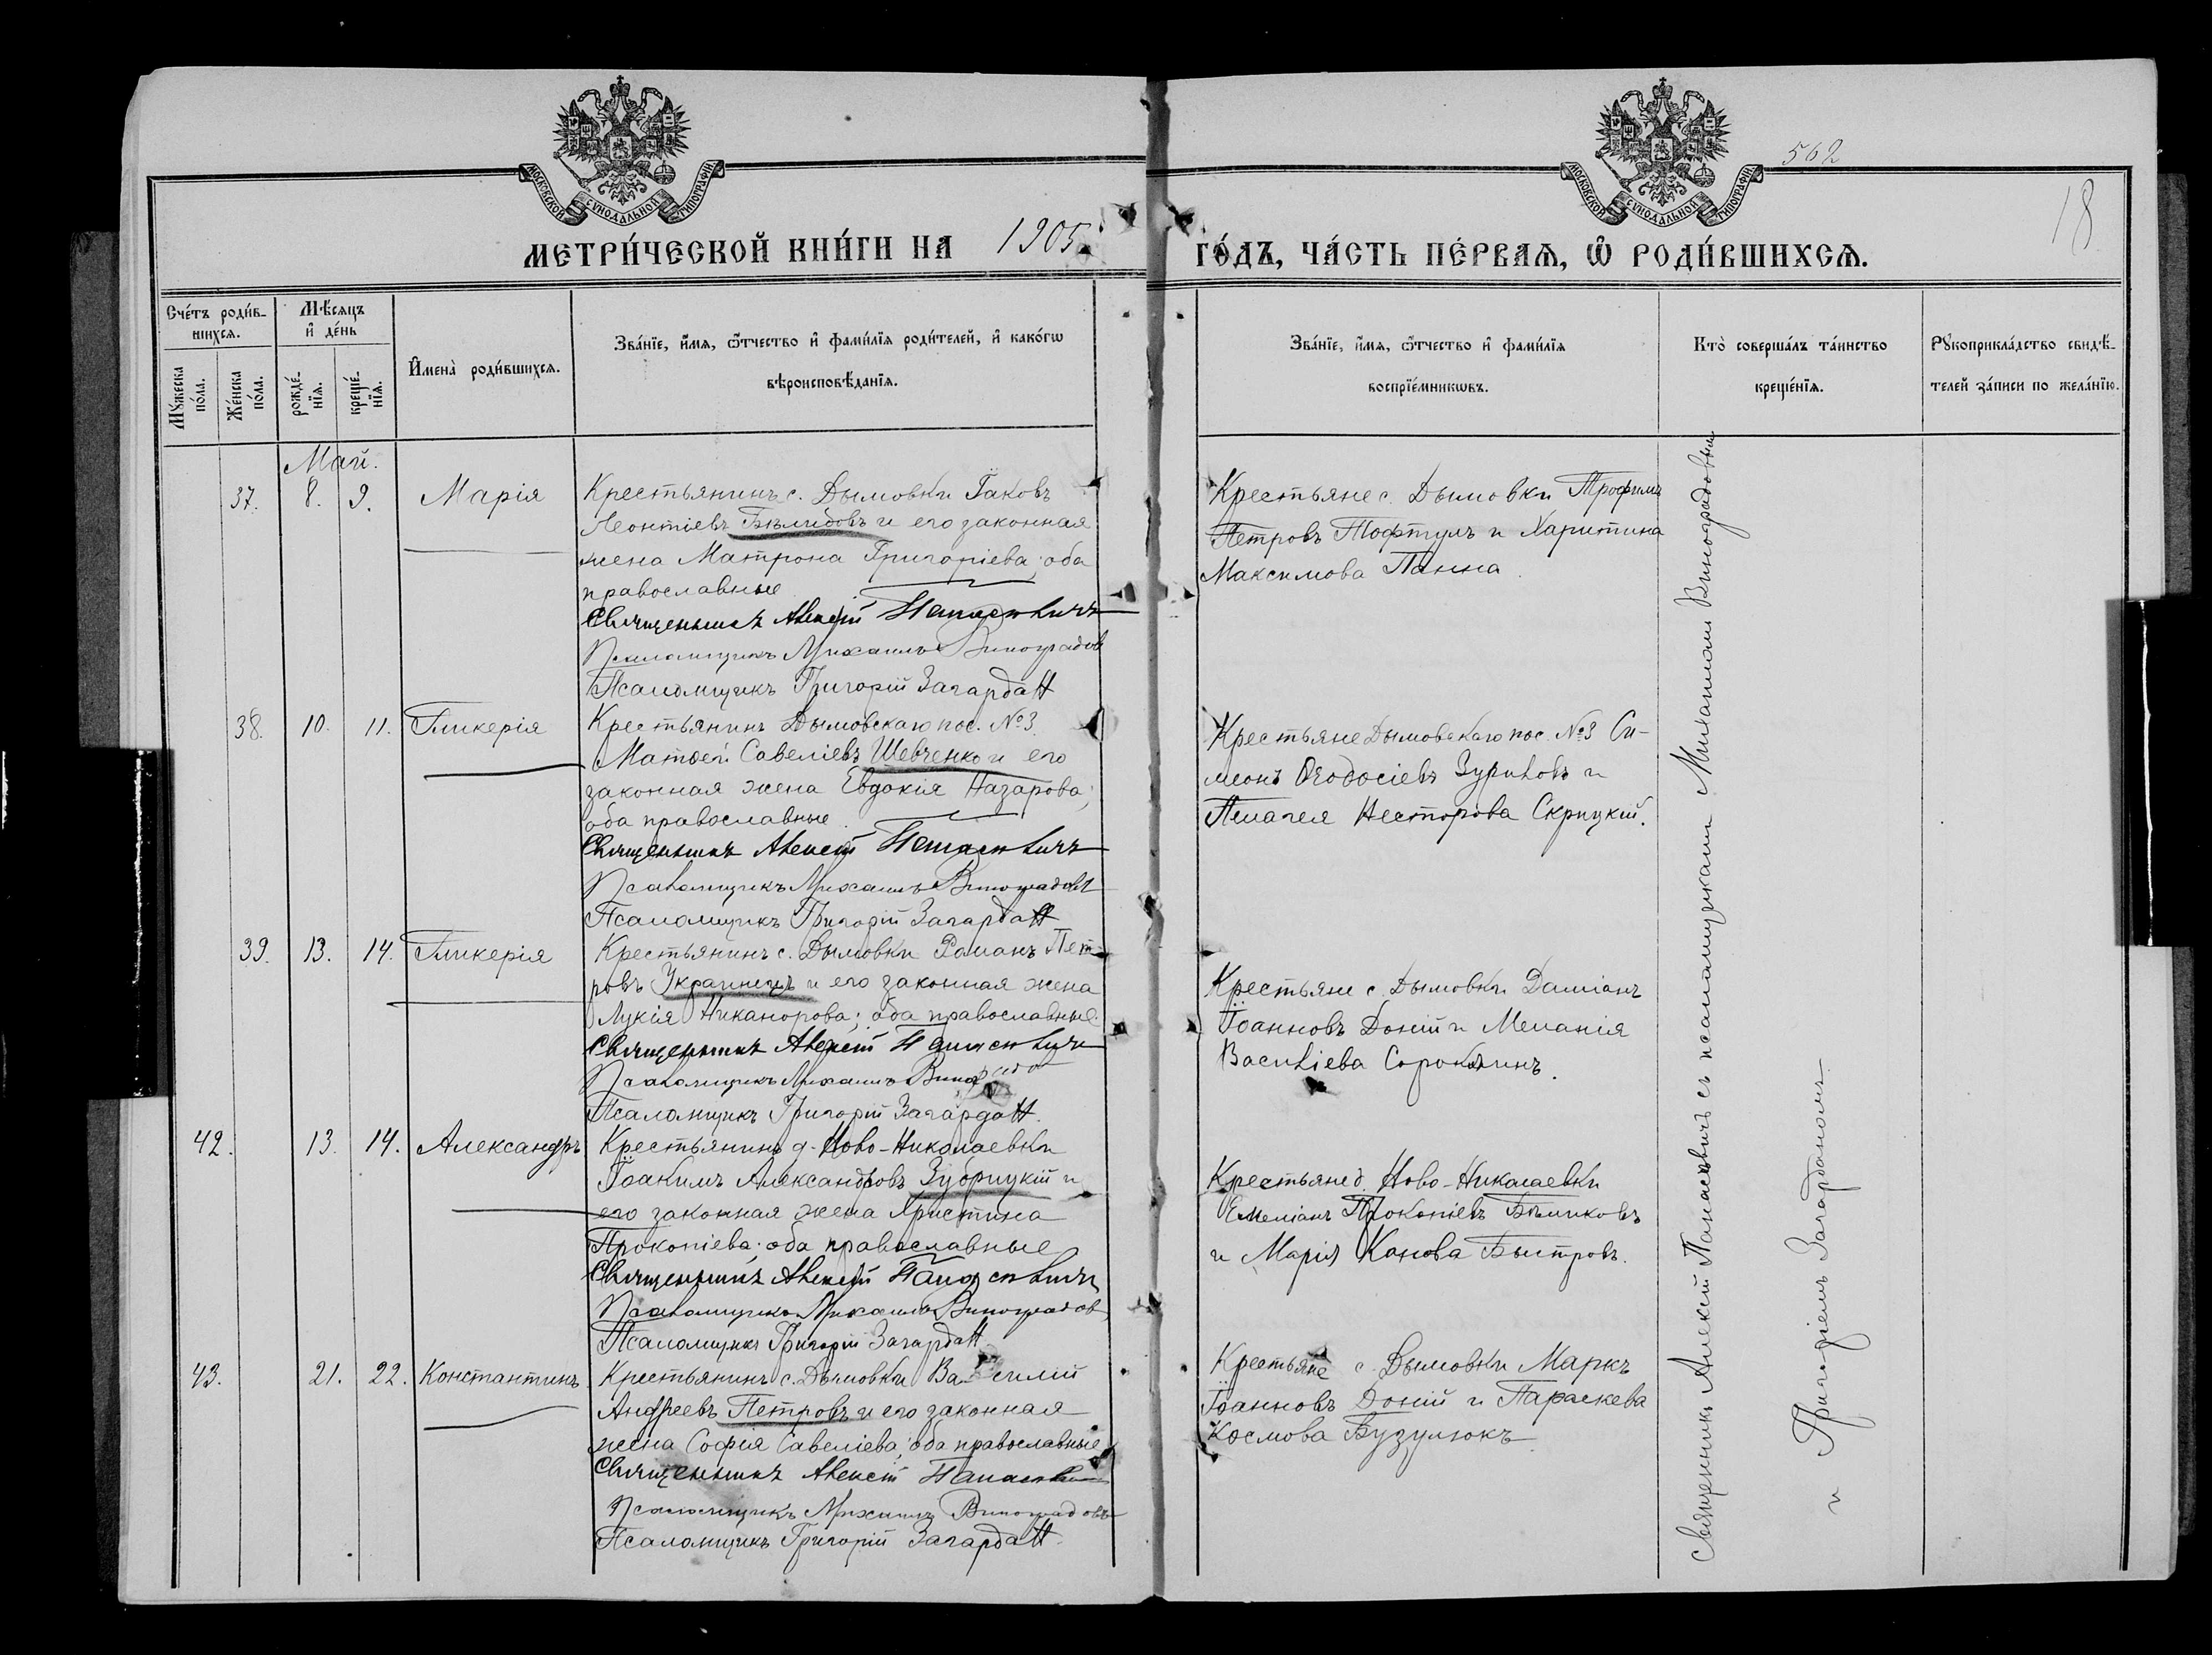 МОСКОВСКОЙ СѴНОДАЛЬНОЙ ТИПОГРАФІИ
МОСКОВСКОЙ СѴНОДАЛЬНОЙ ТИПОГРАФІИ
562
18
МЕТРИ́ЧЕСКОЙ КНИ́ГИ НА 1905 ГО́ДЪ, ЧА́СТЬ ПЕ́РВАѦ, Ѡ҆ РОДИ́ВШИХСѦ.
Сче́тъ роди́в-
шихсѧ.
Мꙋ́жеска
по́ла.
Же́нска
по́ла.
Мѣ́сѧцъ
и҆ де́нь
рожде́-
нїѧ.
креще́-
нїѧ.
И҆мена̀ роди́вшихсѧ.
Зва́нїе, и҆́мѧ, ѻ҆́тчество и҆ фами́лїѧ роди́телей, и҆ како́гѡ
вѣроисповѣ́данїѧ.
Зва́нїе, и҆́мѧ, ѻ҆́тчество и҆ фами́лїѧ
воспрїе́мникѡвъ.
Кто̀ соверша́лъ та́инство
креще́нїѧ.
Рꙋкоприкла́дство свидѣ́-
телей за́писи по жела́нїю.
Май.
37. 8. 9. Марія
Крестьянинъ с. Дымовки Іаковъ
Леонтіевъ Бѣлидовъ и его законная
жена Матрона Григоріева; оба
православные
Священникъ Алексій Панасевичъ
Псаломщикъ Михаилъ Виноградов
Псаломщикъ Григорій Загардан
Крестьяне с. Дымовки Трофимъ
Петровъ Тофтулъ и Харитина
Максимова Панна.
38. 10. 11. Гликерія
Крестьянинъ Дымовскаго пос. №3
Матѳей Савеліевъ Шевченко и его
законная жена Евдокія Назарова;
оба православные.
Священникъ Алексій Панасевичъ
Псаломщикъ Михаилъ Виноградовъ
Псаломщикъ Григорій Загардан
Крестьяне Дымовскаго пос. №3 Си-
меонъ Ѳеодосіевъ Зуриловъ и
Пелагея Несторова Скрицкій.
39. 13. 14. Гликерія
Крестьянинъ с. Дымовки Романъ Пет-
ровъ Украинецъ и его законная жена
Лукія Никанорова; оба православные.
Священникъ Алексій Панасевичъ
Псаломщикъ Михаилъ
Псаломщикъ Григорій Загардан.
Крестьяне с. Дымовки Даміанъ
Іоанновъ Доній и Меланія
Василіева Сорочинъ.
42. 13. 14. Александръ
Крестьянинъ д. Ново-Николаевки
Іоакимъ Александровъ Зубрицкій и
его законная жена Христина
Прокопіева; оба православные
Священникъ Алексій Панасевичъ
Псаломщикъ Михаилъ Виноградов
Псаломщикъ Григорій Загардан
Крестьяне д. Ново-Николаевки
Емеліанъ Прокопіевъ Бѣликовъ
и Марія Конова Быстровъ.
43. 21. 22. Константинъ
Крестьянинъ с. Дымовки Василій
Андреевъ Петровъ и его законная
жена Софія Савеліева; оба православные
Священникъ Алексій Панасевич
Псаломщикъ Михаилъ Виноградовъ
Псаломщикъ Григорій Загардан.
Крестьяне с. Дымовки Маркъ
Іоанновъ Доній и Параскева
Космова Бузулюкъ
Священникъ Алексій Панасевичъ съ псаломщиками Михаиломъ Виноградовымъ
и Григоріемъ Загарданомъ.